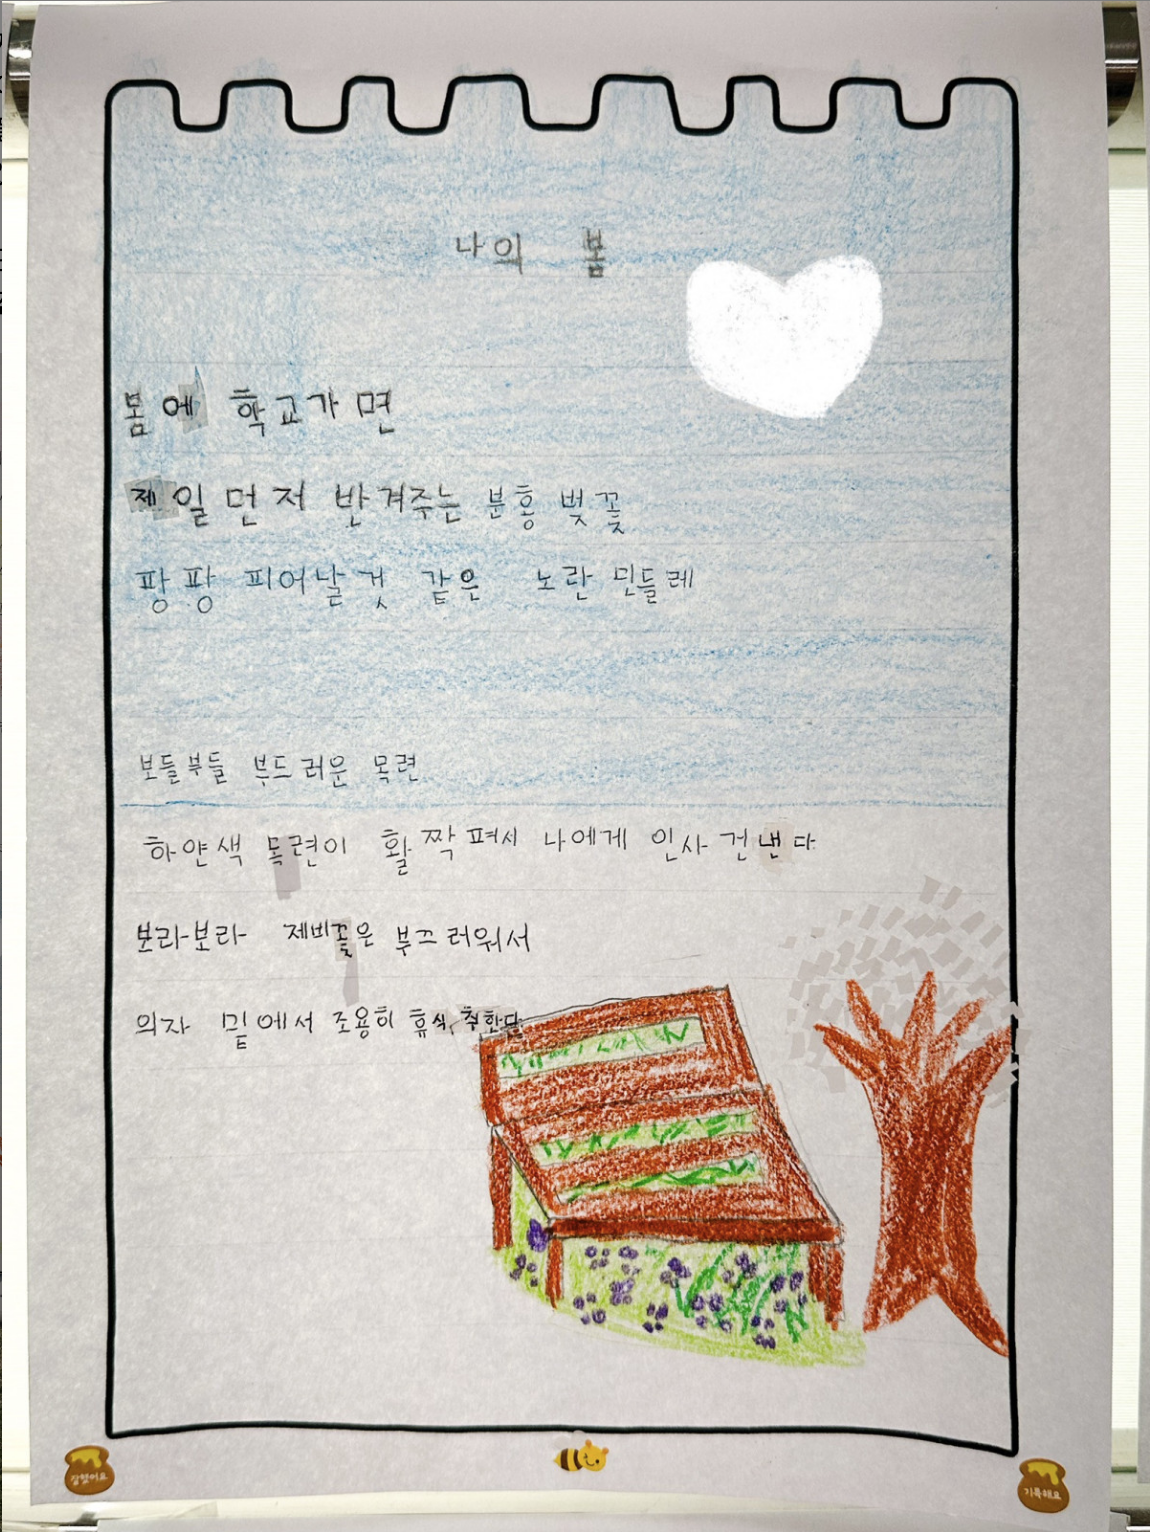 나의 봄
봄에 학교가면
제일 먼저 반겨주는 분홍 벚꽃
팡팡 피어날것 같은 노란 민들레
보들부들 부드러운 목련
하얀색 목련이 활짝 펴서 나에게 인사 건낸다
보라보라 제비꽃은 부끄러워서
의자 밑에서 조용히 휴식 취한다
잘했어요
기특해요